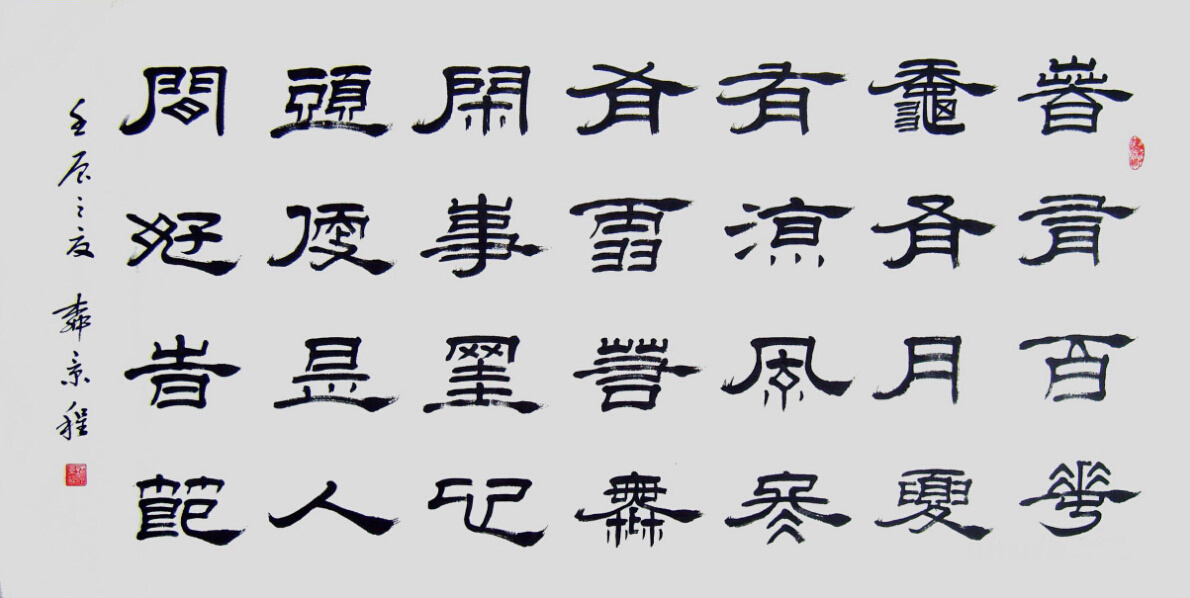 春有百花
龝有月夏
有涼風冬
有雪若無
閑事罣心
頭便是人
間好旹節
壬辰之夏 景程